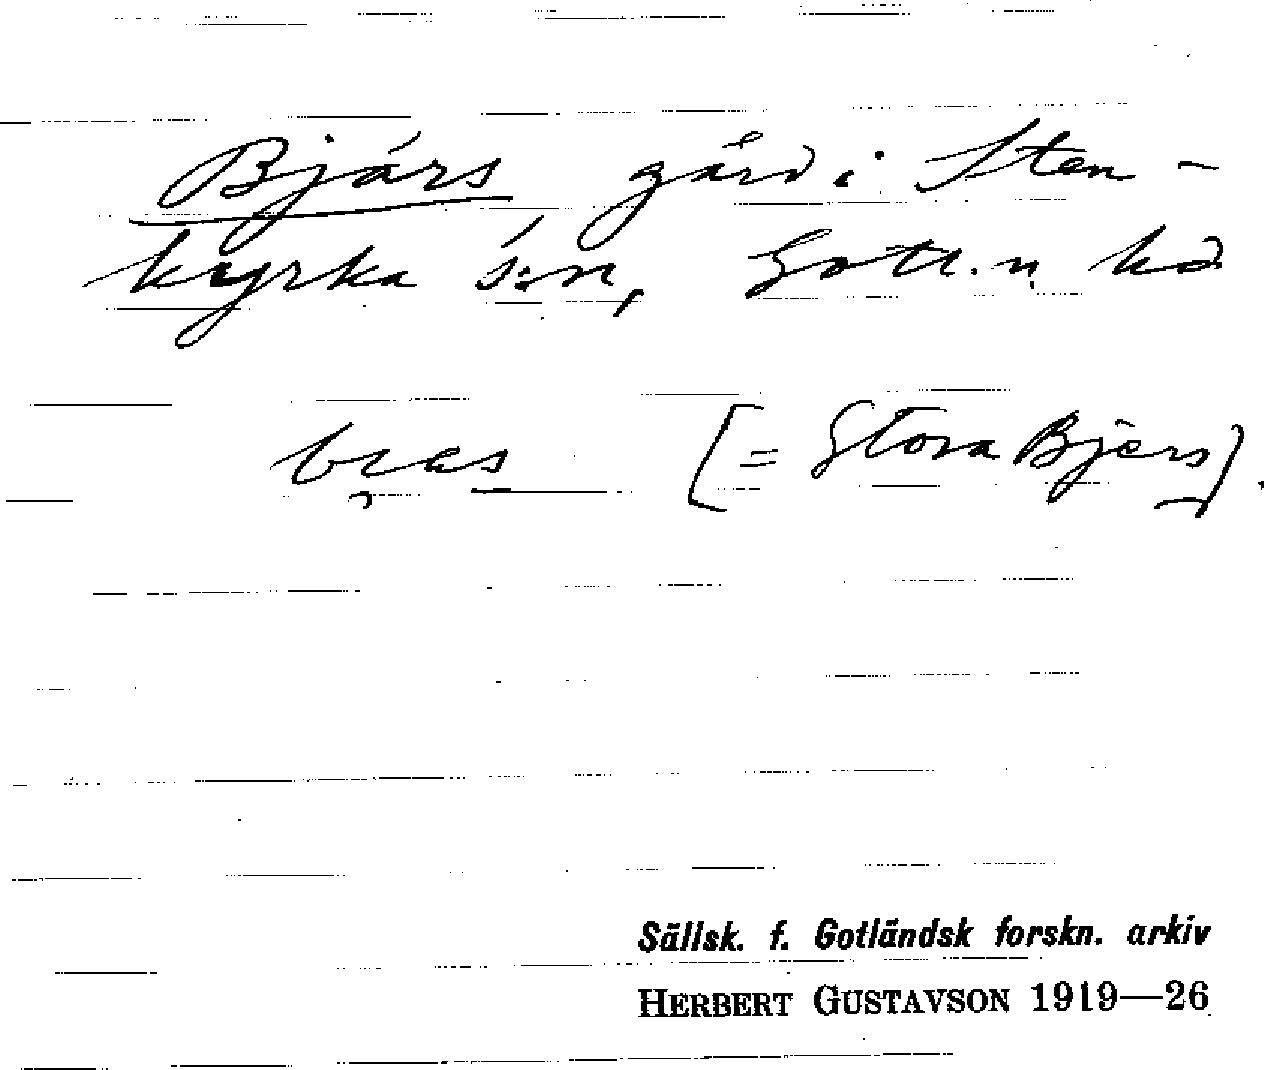 Bjärs gård i Sten-
kyrka s:n, Gotl. n hd
[= Stora Bjers].
Sällsk. f. Gotländsk forskn. arkiv
HERBERT GUSTAVSON 1919—26